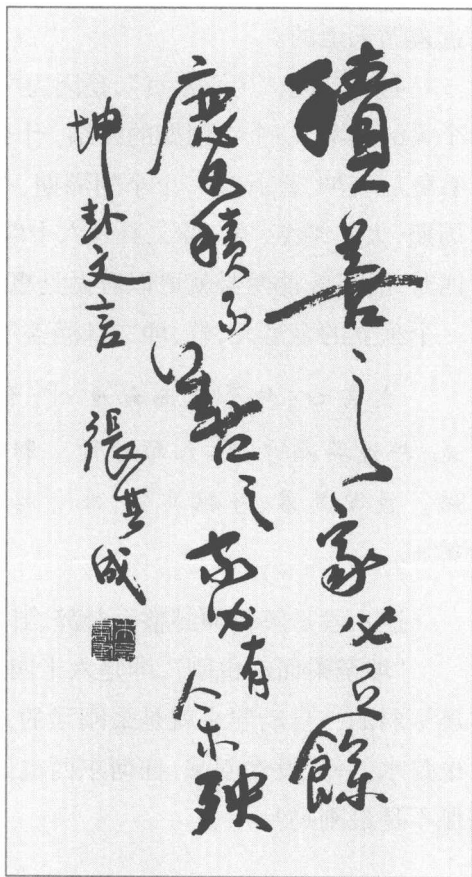 積善之家必有餘
慶積不善之家必有余殃
坤卦文言 張其成